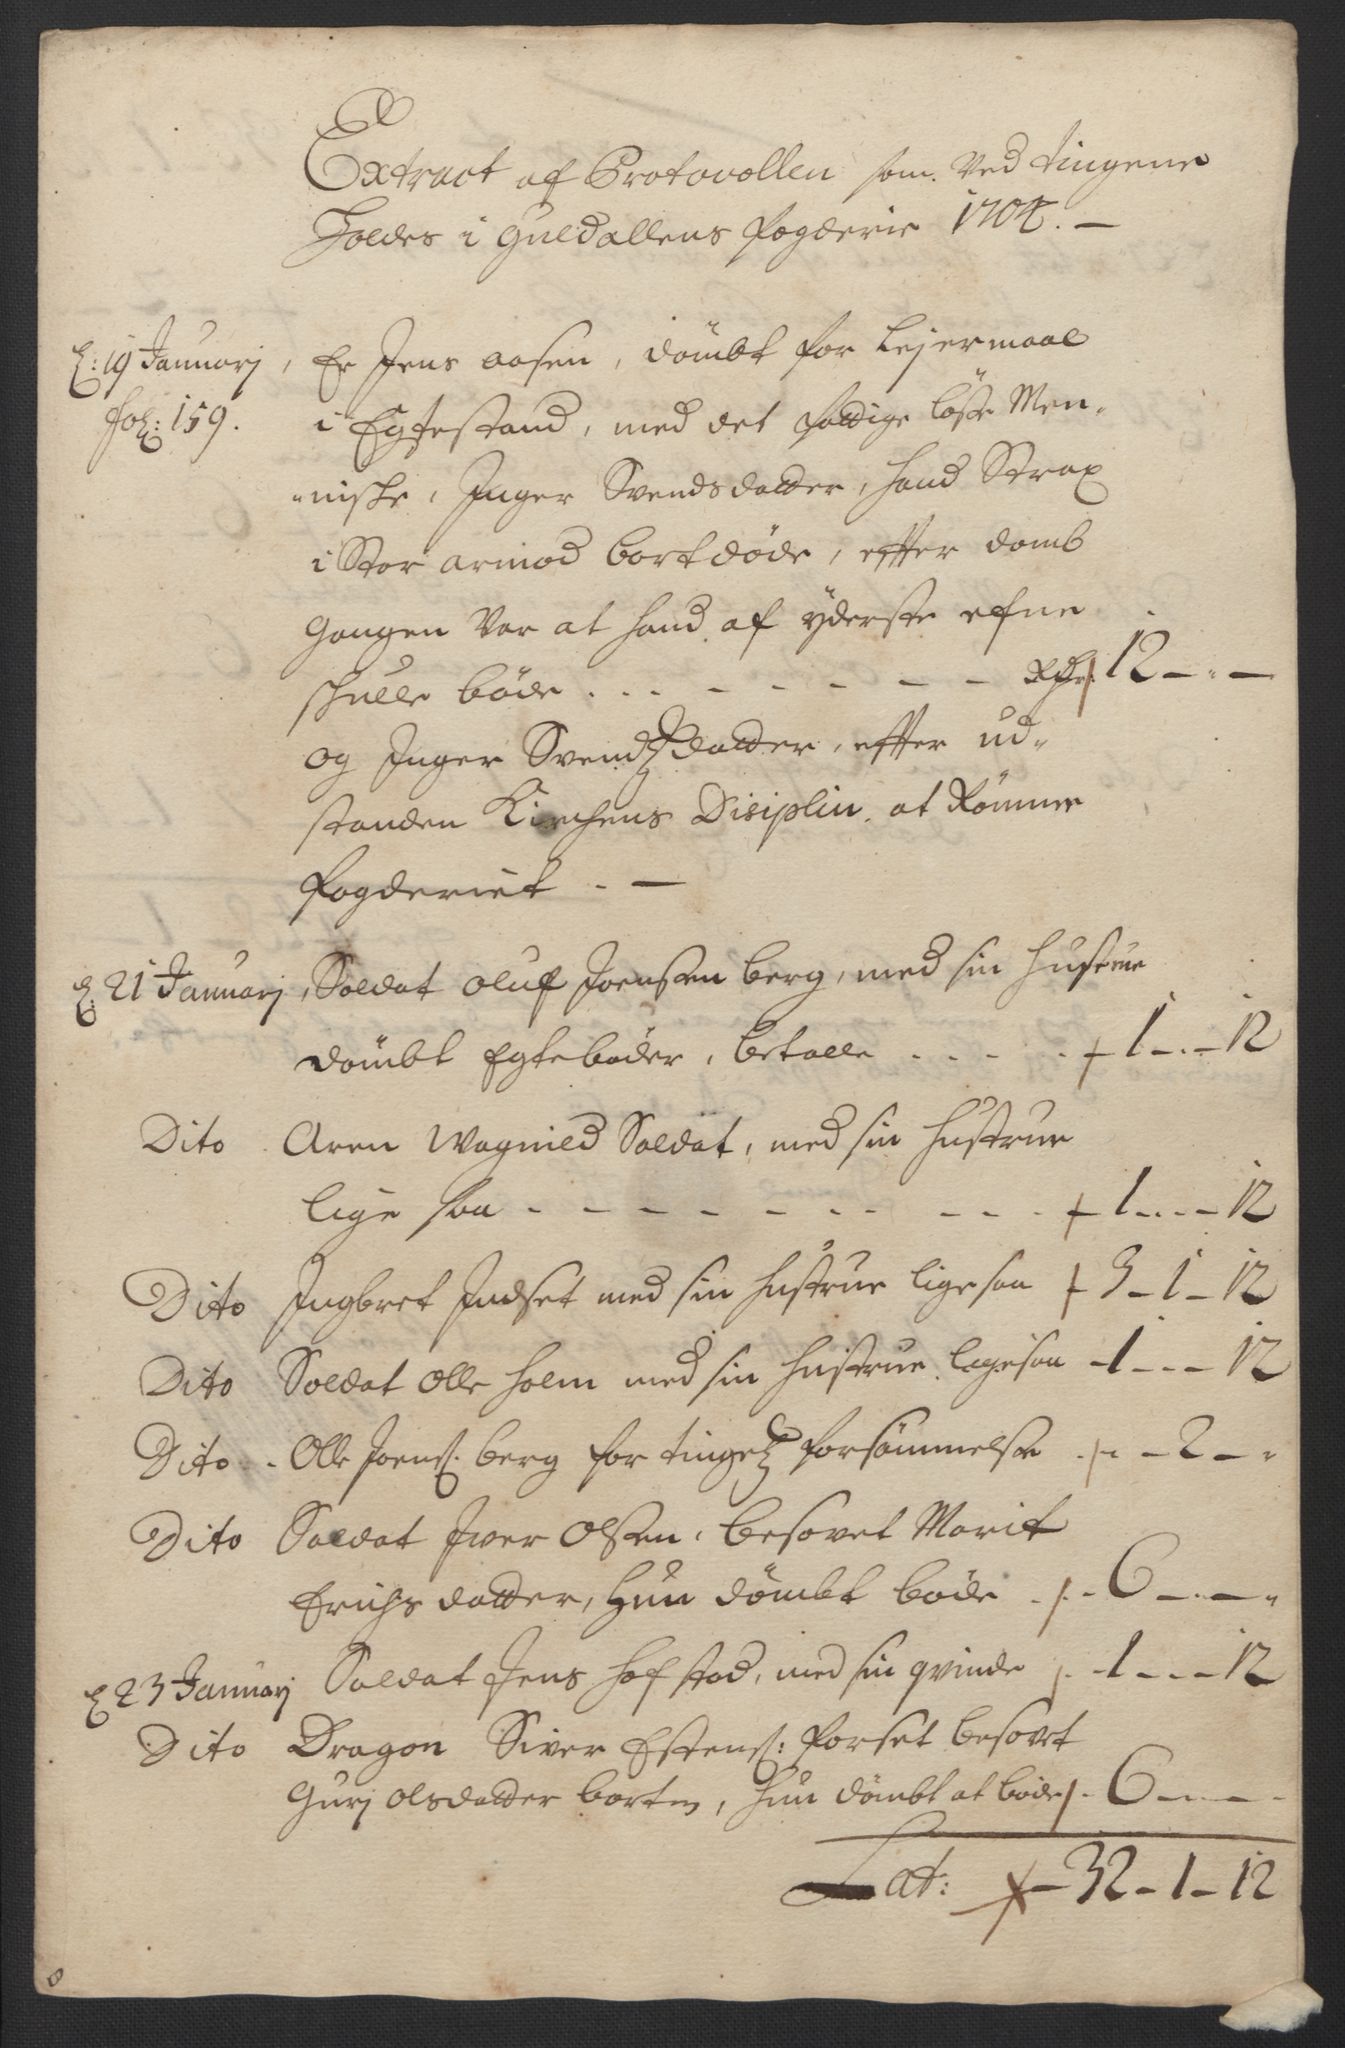 Extract af Protocollen som Ved tingene
Holdes i Guldallens fogderie 1704. —
D: 19 Januarj, Er Jens aasen, dömbt for Lejermaal
fol: 159. i Egtestand, med det fattige löse Men-
-niske, Inger Svendsdatter, hand Strax
i Stor armod bortdöde, effter domb
gangen Var at hand af yderste efne
skulle böde . . . - - - - - Rdr 12 - " -
og Inger Svendsdatter, effter ud-
standen Kirchens Disiplin at Römme
fogderiet . —
D 21 Januarj, Soldat oluf Joensen berg, med sin hustrue
dömbt Egteböder, betalle . . . . . 1 - - 12
Dito Aren Wagnild Soldat, med sin hustrue
lige saa - - - - - - - - - - 1 - - 12
Dito Ingbret Indset med sin hustrue ligesaa 3 - 1 - 12
Dito Soldat Olle holm med sin hustrue ligesaa - 1 - - - 12
Dito - Olle Joens: berg for tingetz forsömmelse . - 2 - "
Dito Soldat Iver Olsen, besovet Marit
Erichsdatter, hun dömbt böde . - 6 - - "
D 23 Januarj Soldat Jens hofstad, med sin qvinde - 1 - - - 12
Dito Dragon Siver Estens: forset besovet
Gurj olsdatter borten, hun dömbt at böde - 6 - - -
Lat: - 32 - 1 - 12